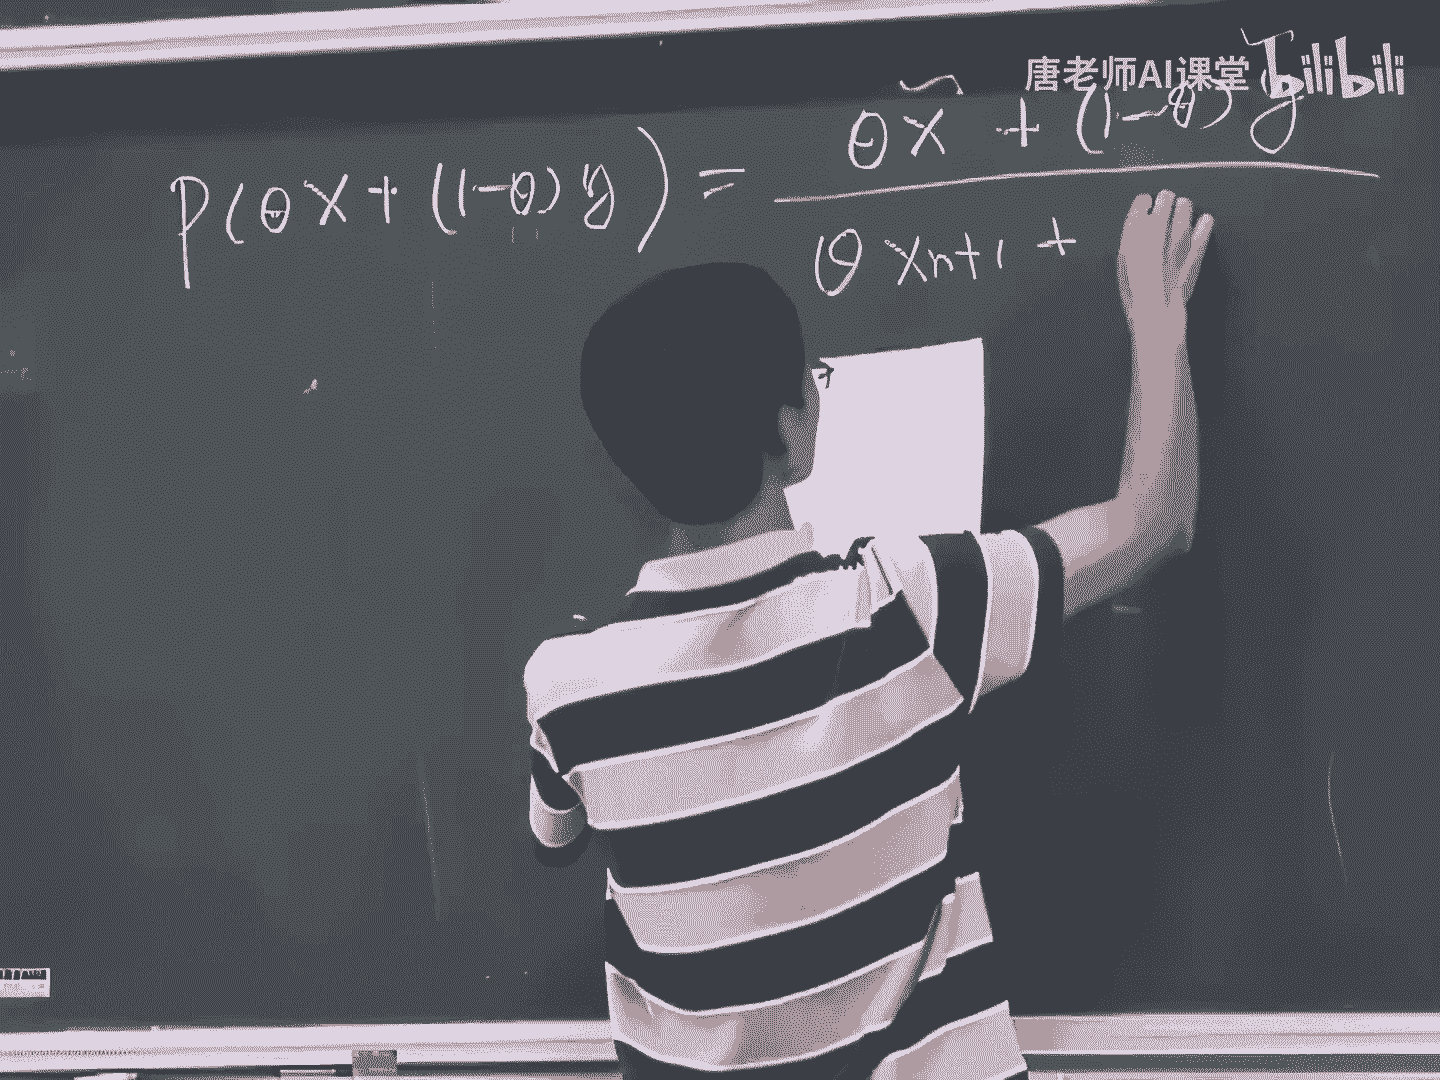 唐老师AI课堂 bilibili
P(θx + (1-θ)y) = 
θx̃ + (1-θ)ỹ
θxn+1 +